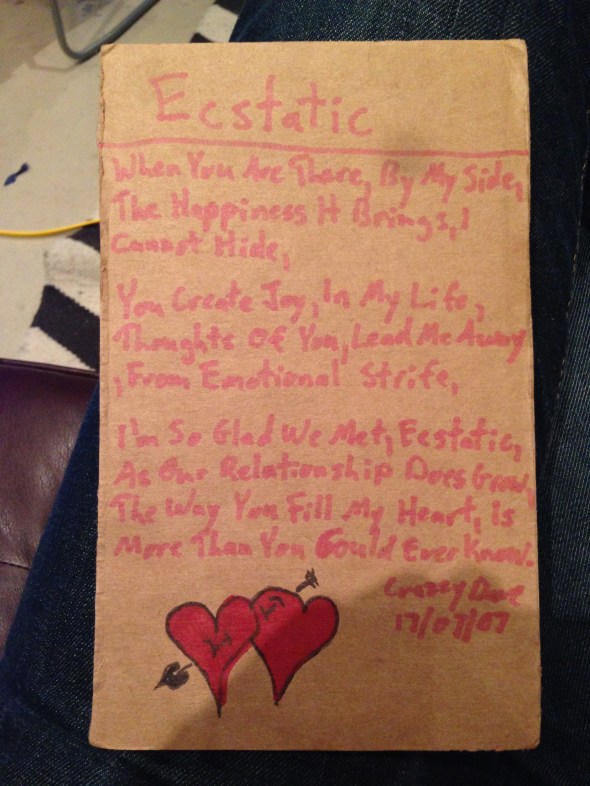 Ecstatic
When You Are There, By My Side,
The Happiness It Brings, I
Cannot Hide,
You Create Joy, In My Life,
Thoughts Of You, Lead Me Away
, From Emotional Strife,
I'm So Glad We Met, Ecstatic,
As Our Relationship Does Grow,
The Way You Fill My Heart, Is
More Than You Could Ever Know.
Crazey Dave
17/07/07